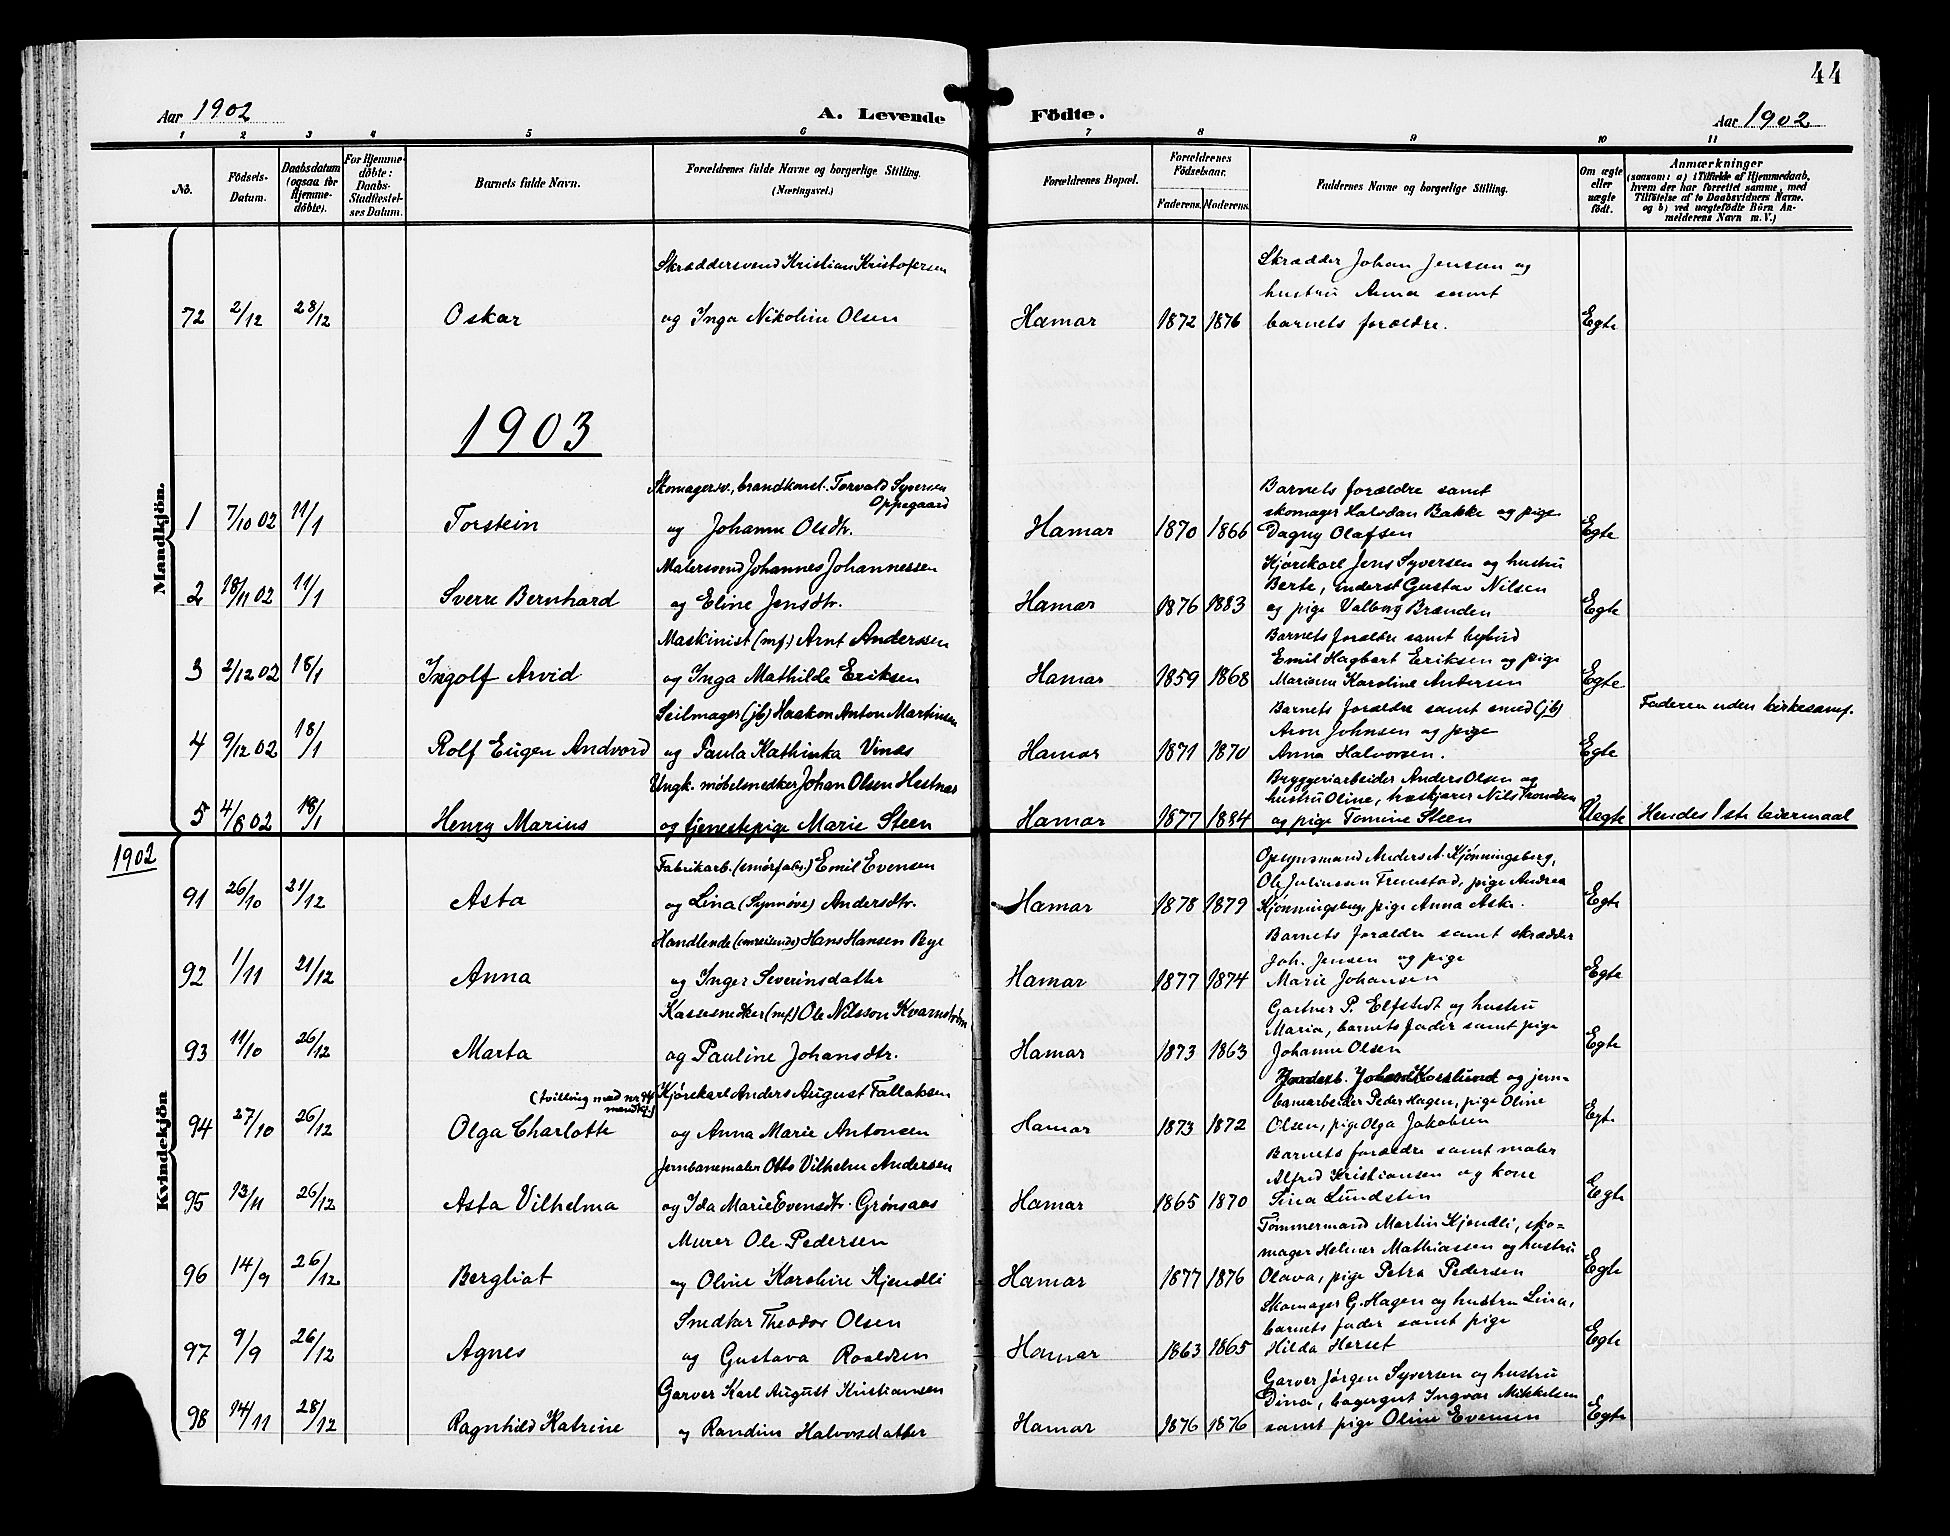 44
Aar 1902
A. Levende Födte.
Aar 1902
1 2 3 4 5 6 7 8 9 10 11
No.
Födsels-Datum.
Daabsdatum (ogsaa for Hjemme-döbte).
For Hjemme-döbte: Daabs-Stadfæstel-ses Datum.
Barnets fulde Navn.
Forældrenes fulde Navne og borgerlige Stilling. (Næringsvei.)
Forældrenes Bopæl.
Forældrenes Födselsaar.
Faderens. Moderens.
Faddernes Navne og borgerlige Stilling.
Om ægte eller uægte födt.
Anmærkninger
(saasom: a) i Tilfælde af Hjemmedaab,
hvem der har forrettet samme, med
Tilföielse af to Daabsvidners Navne.
og b) ved uægtefödte Börn An-
melderens Navn m. V.)
Mandkjön.
Skræddersvend Kristian Kristofersen
Skrædder Johan Jensen og
hustru Anna samt
72 2/12 28/12 Oskar og Inga Nikoline Olsen Hamar 1872 1876 barnets forældre. Egte
1903
Skomagersv., brandkonst. Torvald Syversen
Oppegaard
Barnets forældre samt
skomager Halvdan Bakke og pige
1 7/10 02 11/1 Torstein og Johanne Olsdtr. Hamar 1870 1866 Dagny Olafsen Egte
Malersvend Johannes Johannessen
Kjørekarl Jens Syversen og hustru
Berte, inderst Gustav Nilsen
2 18/11 02 11/1 Sverre Bernhard og Eline Jensdtr. Hamar 1876 1883 og pige Valborg Brænden Egte
Maskinist (mf.) Arnt Anderssen
Barnets forældre samt bybud
Emil Hagbart Eriksen og pige
3 2/12 02 18/1 Ingolf Arvid og Inga Mathilde Eriksen Hamar 1859 1868 Mariane Karoline Andersen Egte
Seilmager (jb) Haakon Anton Martinsen
Barnets forældre samt smed (jb)
Aron Johnsen og pige
Faderen uden kirkesamf.
4 9/12 02 18/1 Rolf Eugen Andvord og Paula Kathinka Vinæs Hamar 1871 1870 Anna Halvorsen. Egte
Ungk. møbelsnedker Johan Olsen Hestnæs
Bryggeriarbeider Anders Olsen og
hustru Oline, træskjærer Nils Trondsen
5 4/8 02 18/1 Henry Marius og tjenestepige Marie Steen Hamar 1877 1884 og pige Tomine Steen Uegte Hendes 1ste leiermaal
1902
Kvindekjön
Fabrikarb. (smørfabr.) Emil Evensen
Opsynsmand Anders A. Kjønningsberg,
Ole Juliussen Frenstad, pige Andrea
91 26/10 21/12 Asta og Lina (Synnøve) Andersdtr. Hamar 1878 1879 Kjønningsberg, pige Anna Aske. Egte
Handlende (omreisende) Hans Hansen Bye
Barnets forældre samt skrædder
Joh. Jensen og pige
92 1/11 21/12 Anna og Inger Severinsdatter Hamar 1877 1874 Marie Johansen Egte
Kassesnedker (mf.) Ole Nilsson Kvarnstrøm
Gartner P. Elfstedt og hustru
Maria, barnets fader samt pige
93 11/10 26/12 Marta og Pauline Johansdtr. Hamar 1873 1863 Johanne Olsen Egte
(tvilling med nr. 74 mandkj.)
Kjørekarl Anders August Tallaksen
Johan Korslund og jern-
banearbeider Peder Hagen, pige Oline
94 27/10 26/12 Olga Charlotte og Anna Marie Antonsen Hamar 1873 1872 Olsen, pige Olga Jakobsen Egte
Jernbanemaler Otto Vilhelm Andersen
Barnets forældre samt maler
Alfred Kristiansen og kone
95 13/11 26/12 Asta Vilhelma og Ida Marie Evensdtr. Grønsaas Hamar 1865 1870 Sina Lundsten Egte
Murer Ole Pedersen
Tømmermand Martin Kjendli, sko-
mager Helmer Mathiassen og hustru
96 14/9 26/12 Bergliot og Oline Karoline Kjendli Hamar 1877 1876 Olava, pige Petra Pedersen Egte
Snedker Theodor Olsen
Skomager G. Hagen og hustru Lina,
barnets fader samt pige
97 9/9 26/12 Agnes og Gustava Roaldsen Hamar 1863 1865 Hilda Herset Egte
Garver Karl August Kristiansen
Garver Jørgen Syversen og hustru
Dina, bagergut Ingvar Mikkelsen
98 14/11 28/12 Ragnhild Katrine og Randine Halvorsdatter Hamar 1876 1876 samt pige Oline Evensen Egte